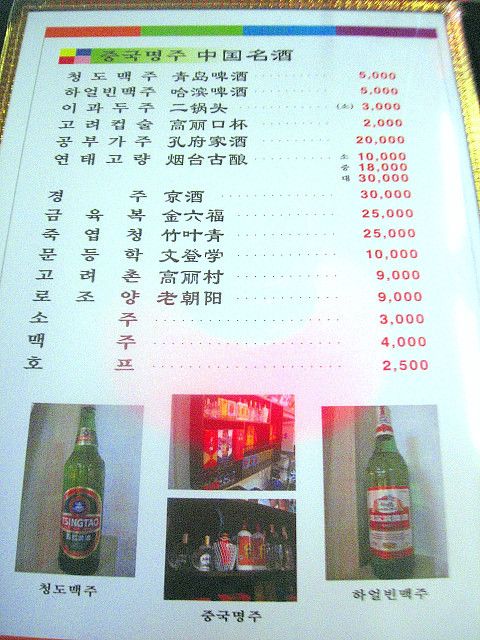 중국명주 中国名酒
청도맥주 青岛啤酒 5,000
하얼빈맥주 哈滨啤酒 5,000
이과두주 二锅头 (소) 3,000
고려컵술 高丽口杯 2,000
공부가주 孔府家酒 20,000
연태고량 烟台古酿 소 10,000
중 18,000
대 30,000
경주 京酒 30,000
금육복 金六福 25,000
죽엽청 竹叶青 25,000
문등학 文登学 10,000
고려촌 高丽村 9,000
로조양 老朝阳 9,000
소주 3,000
맥주 4,000
호프 2,500
TSINGTAO
청도맥주
중국명주
하얼빈맥주